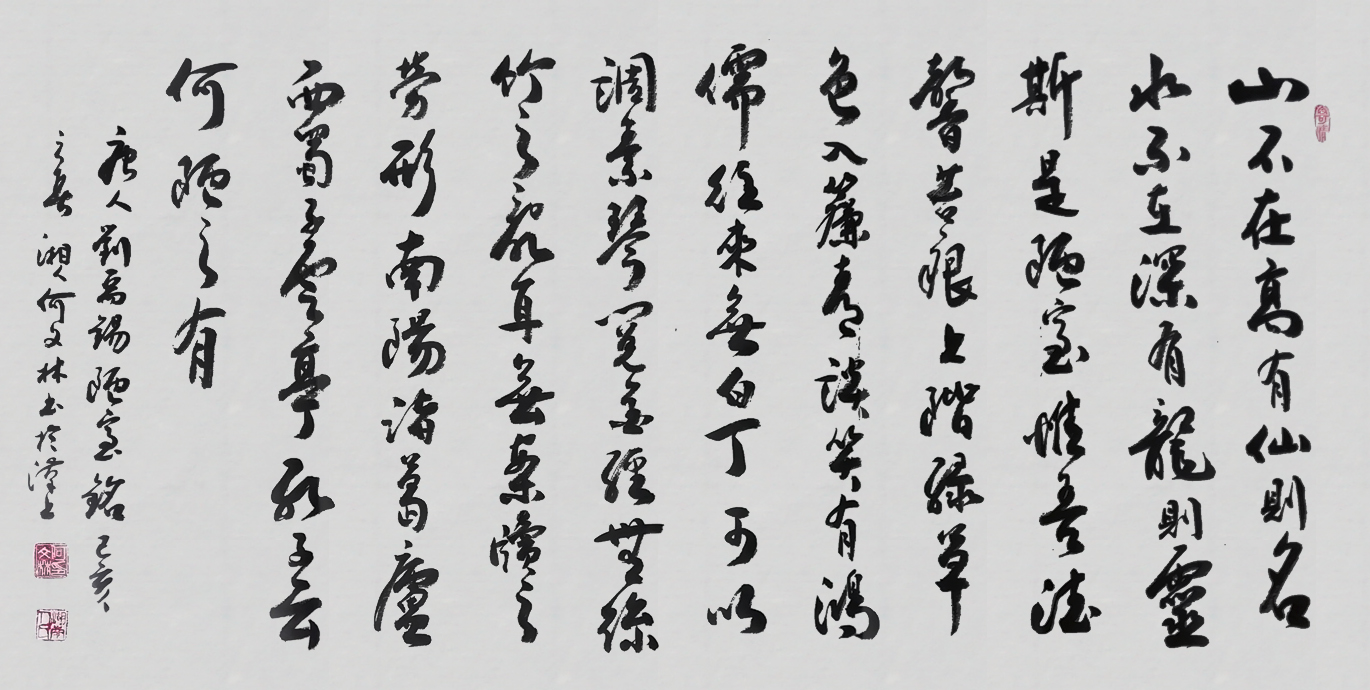 山不在高有仙則名
水不在深有龍則靈
斯是陋室惟吾德
馨苔痕上階緑草
色入簾青談笑有鴻
儒往來無白丁可以
調素琴閱金經無絲
竹之亂耳無案牘之
勞形南陽諸葛廬
西蜀子雲亭孔子云
何陋之有
唐人劉禹錫陋室銘己亥
之春湘人何文林書於漢上
何文林印